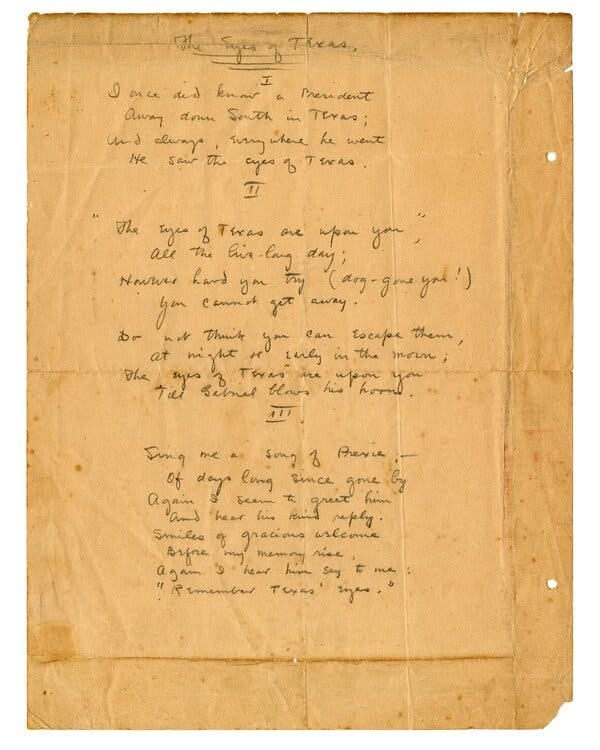 The Eyes of Texas.
I
I once did know a President
Away down South in Texas;
And always, everywhere he went
He saw the eyes of Texas.
II
"The Eyes of Texas are upon you",
All the live-long day;
However hard you try (dog-gone you!)
You cannot get away.
Do not think you can escape them,
At night or early in the morn;
The eyes of Texas are upon you
Till Gabriel blows his horn.
III.
Sing me a song of Prexie,—
Of days long since gone by
Again I seem to greet him
And hear his kind reply.
Smiles of gracious welcome
Before my memory rise,
Again I hear him say to me:
"Remember Texas' Eyes."